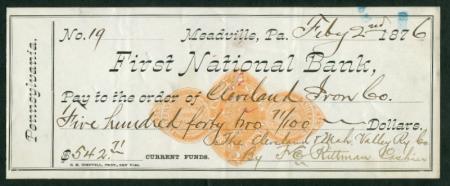 No. 19 Meadville, Pa. Feby 2nd 1876
First National Bank,
Pay to the order of Cleveland Iron Co.
Five hundred forty two 71/100 Dollars.
The Cleveland & Mah. Valley Ry Co
$542.71 CURRENT FUNDS. By F.E. Rittman Cashier
Pennsylvania.